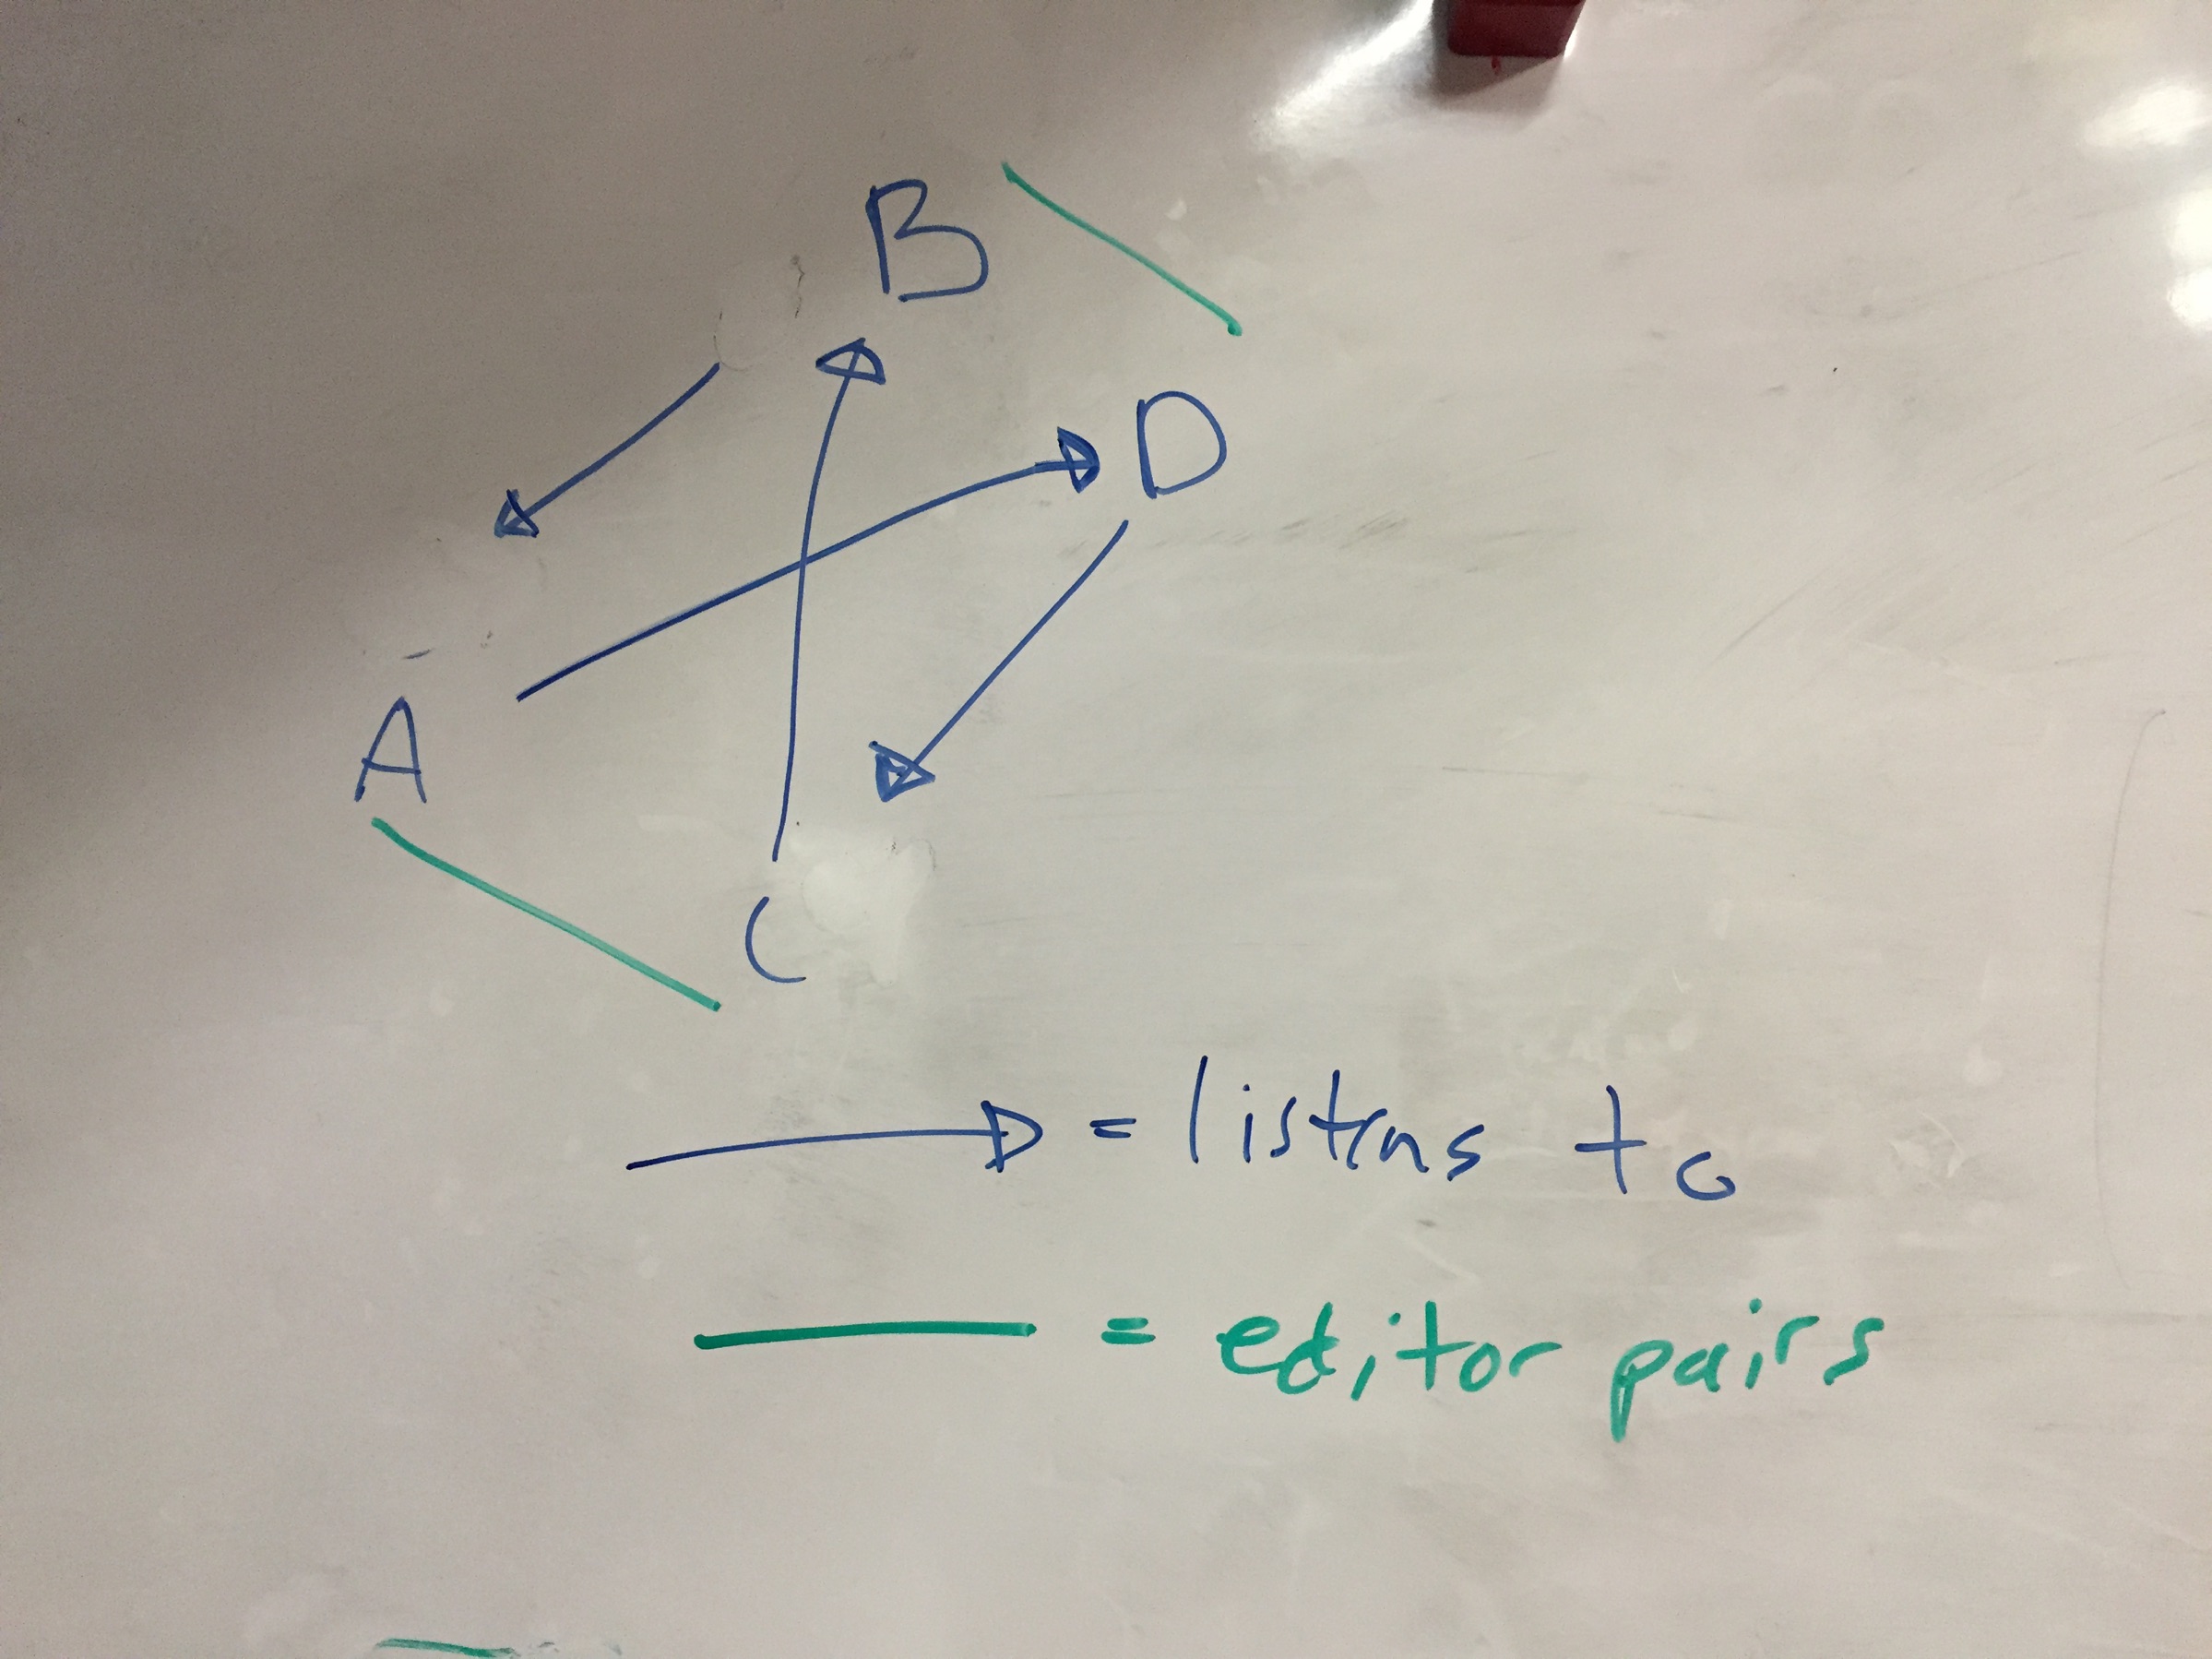 B
D
A
C
= listens to
= editor pairs